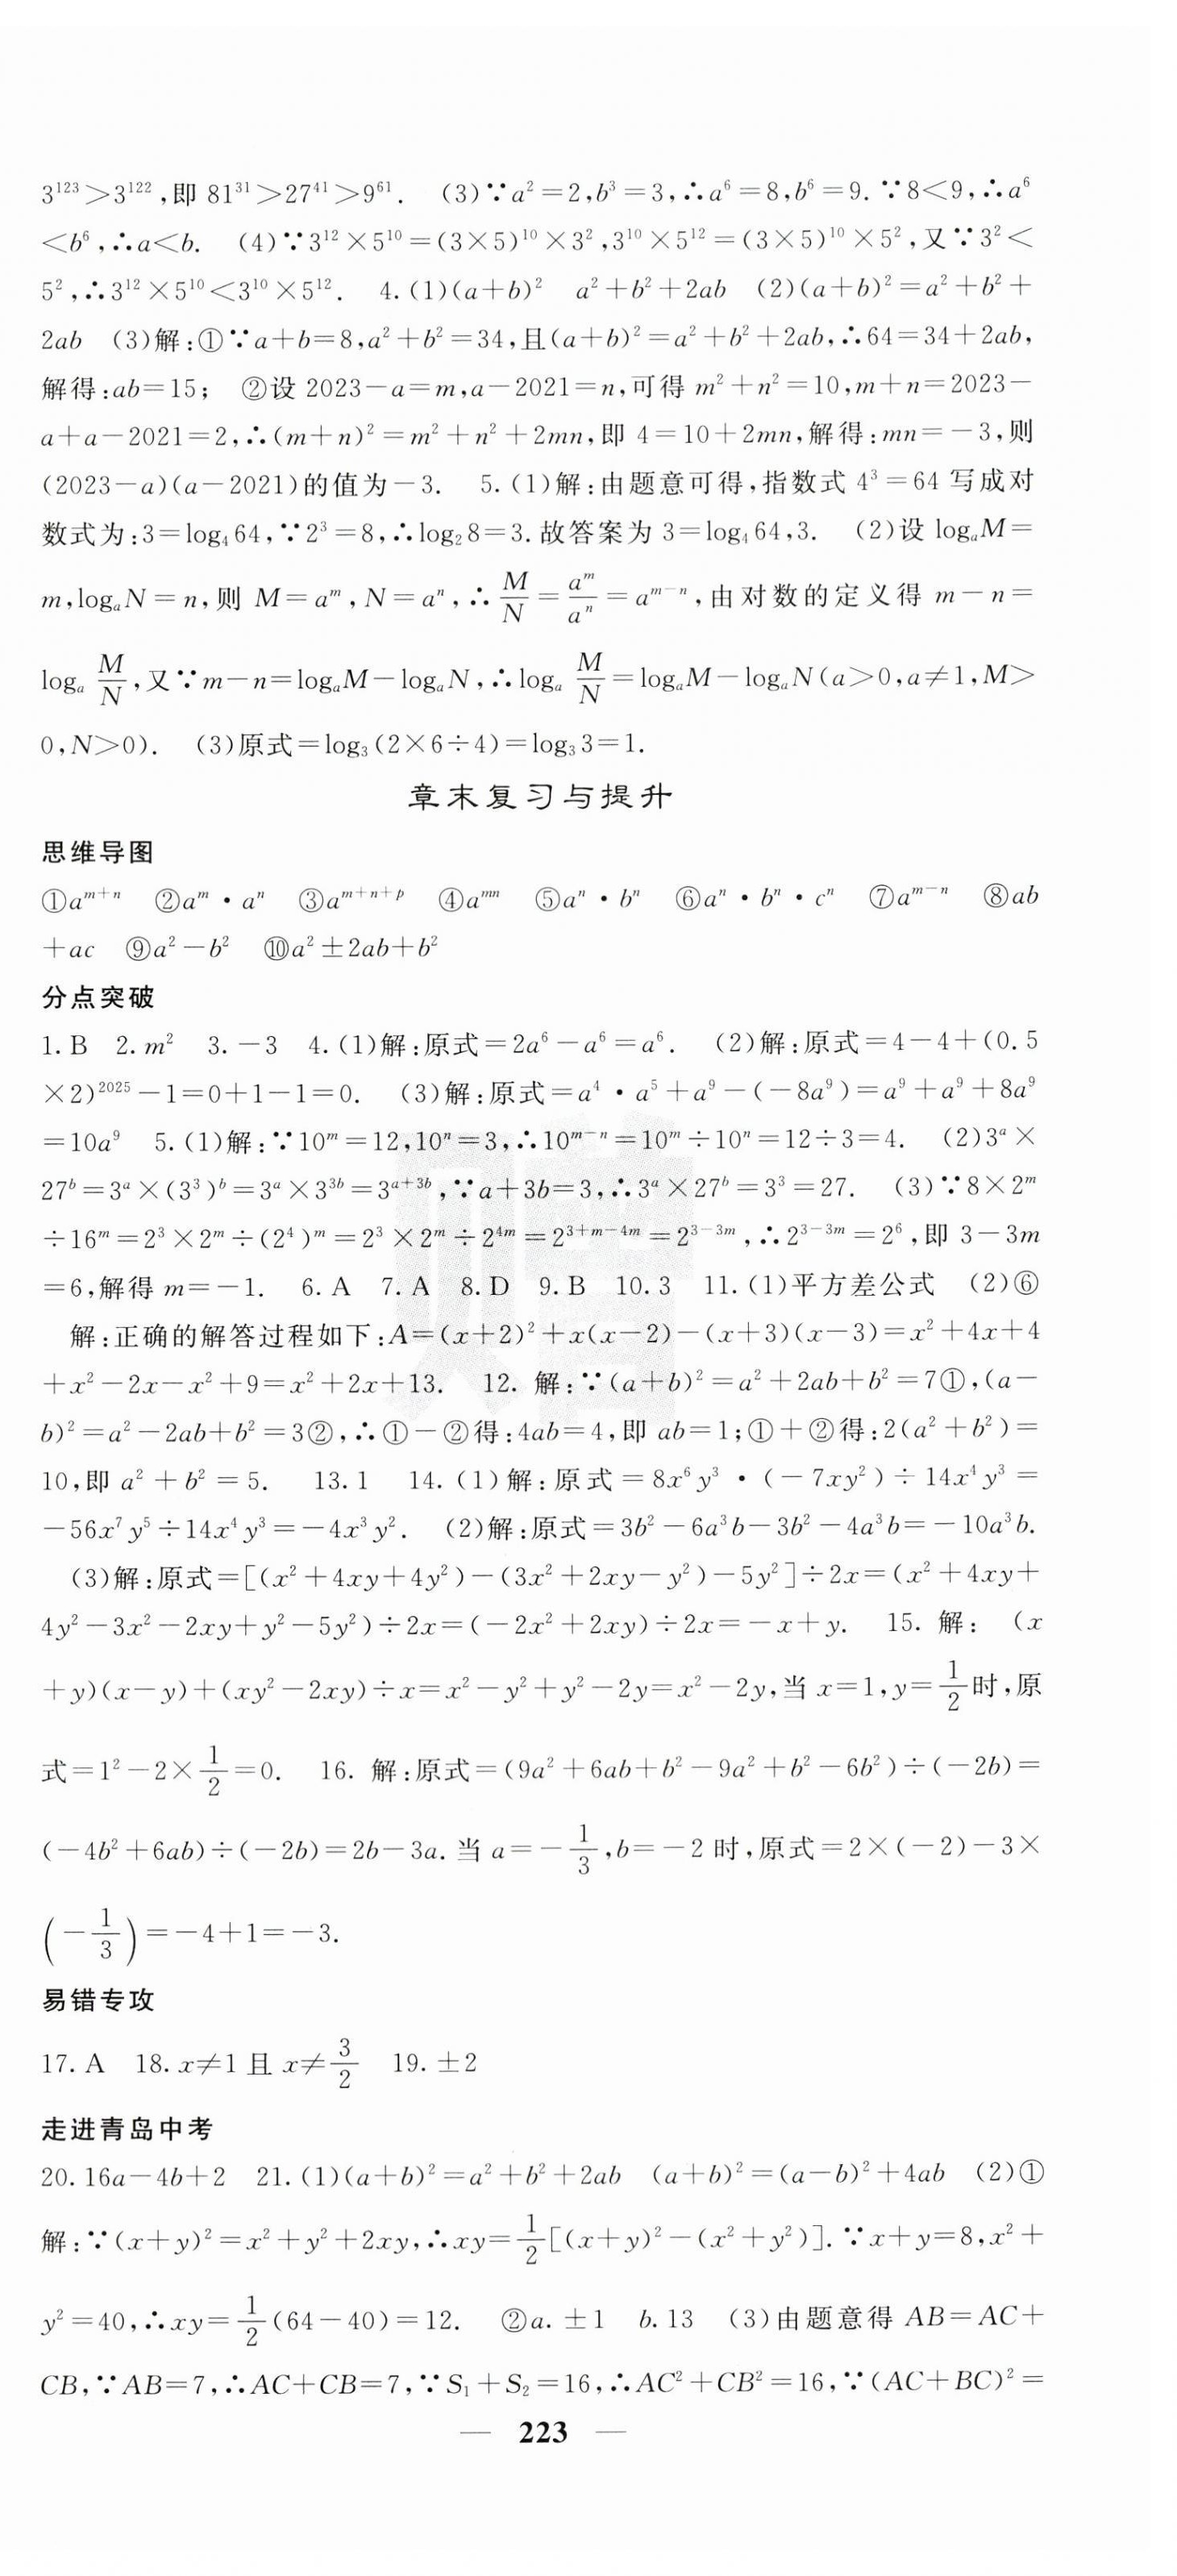 3¹²³>3¹²²,即 81³¹>27⁴¹>9⁶¹. (3)∵a²=2,b³=3,∴a⁶=8,b⁶=9.∵8<9,∴a⁶
<b⁶,∴a<b. (4)∵3¹²×5¹⁰=(3×5)¹⁰×3²,3¹⁰×5¹²=(3×5)¹⁰×5²,又∵3²<
5²,∴3¹²×5¹⁰<3¹⁰×5¹². 4.(1)(a+b)² a²+b²+2ab (2)(a+b)²=a²+b²+
2ab (3)解:①∵a+b=8,a²+b²=34,且(a+b)²=a²+b²+2ab,∴64=34+2ab,
解得:ab=15; ②设 2023-a=m,a-2021=n,可得 m²+n²=10,m+n=2023-
a+a-2021=2,∴(m+n)²=m²+n²+2mn,即 4=10+2mn,解得:mn=-3,则
(2023-a)(a-2021)的值为-3. 5.(1)解:由题意可得,指数式 4³=64 写成对
数式为:3=log₄64,∵2³=8,∴log₂8=3.故答案为 3=log₄64,3. (2)设 logₐM=
m,logₐN=n,则 M=aᵐ,N=aⁿ,∴M/N=aᵐ/aⁿ=aᵐ⁻ⁿ,由对数的定义得 m-n=
logₐ M/N,又∵m-n=logₐM-logₐN,∴logₐ M/N=logₐM-logₐN(a>0,a≠1,M>
0,N>0). (3)原式=log₃(2×6÷4)=log₃3=1.
章末复习与提升
思维导图
①aᵐ⁺ⁿ ②aᵐ·aⁿ ③aᵐ⁺ⁿ⁺ᵖ ④aᵐⁿ ⑤aⁿ·bⁿ ⑥aⁿ·bⁿ·cⁿ ⑦aᵐ⁻ⁿ ⑧ab
+ac ⑨a²-b² ⑩a²±2ab+b²
分点突破
1.B 2.m² 3.-3 4.(1)解:原式=2a⁶-a⁶=a⁶. (2)解:原式=4-4+(0.5
×2)²⁰²⁵-1=0+1-1=0. (3)解:原式=a⁴·a⁵+a⁹-(-8a⁹)=a⁹+a⁹+8a⁹
=10a⁹ 5.(1)解:∵10ᵐ=12,10ⁿ=3,∴10ᵐ⁻ⁿ=10ᵐ÷10ⁿ=12÷3=4. (2)3ᵃ×
27ᵇ=3ᵃ×(3³)ᵇ=3ᵃ×3³ᵇ=3ᵃ⁺³ᵇ,∵a+3b=3,∴3ᵃ×27ᵇ=3³=27. (3)∵8×2ᵐ
÷16ᵐ=2³×2ᵐ÷(2⁴)ᵐ=2³×2ᵐ÷2⁴ᵐ=2³⁺ᵐ⁻⁴ᵐ=2³⁻³ᵐ,∴2³⁻³ᵐ=2⁶,即 3-3m
=6,解得 m=-1. 6.A 7.A 8.D 9.B 10.3 11.(1)平方差公式 (2)⑥
解:正确的解答过程如下:A=(x+2)²+x(x-2)-(x+3)(x-3)=x²+4x+4
+x²-2x-x²+9=x²+2x+13. 12. 解:∵(a+b)²=a²+2ab+b²=7①,(a-
b)²=a²-2ab+b²=3②,∴①-②得:4ab=4,即 ab=1;①+②得:2(a²+b²)=
10,即 a²+b²=5. 13.1 14.(1)解:原式=8x⁶y³·(-7xy²)÷14x⁴y³=
-56x⁷y⁵÷14x⁴y³=-4x³y². (2)解:原式=3b²-6a³b-3b²-4a³b=-10a³b.
(3)解:原式=[(x²+4xy+4y²)-(3x²+2xy-y²)-5y²]÷2x=(x²+4xy+
4y²-3x²-2xy+y²-5y²)÷2x=(-2x²+2xy)÷2x=-x+y. 15. 解: (x
+y)(x-y)+(xy²-2xy)÷x=x²-y²+y²-2y=x²-2y,当 x=1,y=1/2时,原
式=1²-2×1/2=0. 16. 解:原式=(9a²+6ab+b²-9a²+b²-6b²)÷(-2b)=
(-4b²+6ab)÷(-2b)=2b-3a.当 a=-1/3,b=-2 时,原式=2×(-2)-3×
(-1/3)=-4+1=-3.
易错专攻
17.A 18.x≠1 且 x≠3/2 19.±2
走进青岛中考
20.16a-4b+2 21.(1)(a+b)²=a²+b²+2ab (a+b)²=(a-b)²+4ab (2)①
解:∵(x+y)²=x²+y²+2xy,∴xy=1/2[(x+y)²-(x²+y²)].∵x+y=8,x²+
y²=40,∴xy=1/2(64-40)=12. ②a.±1 b.13 (3)由题意得 AB=AC+
CB,∵AB=7,∴AC+CB=7,∵S₁+S₂=16,∴AC²+CB²=16,∵(AC+BC)²=
— 223 —